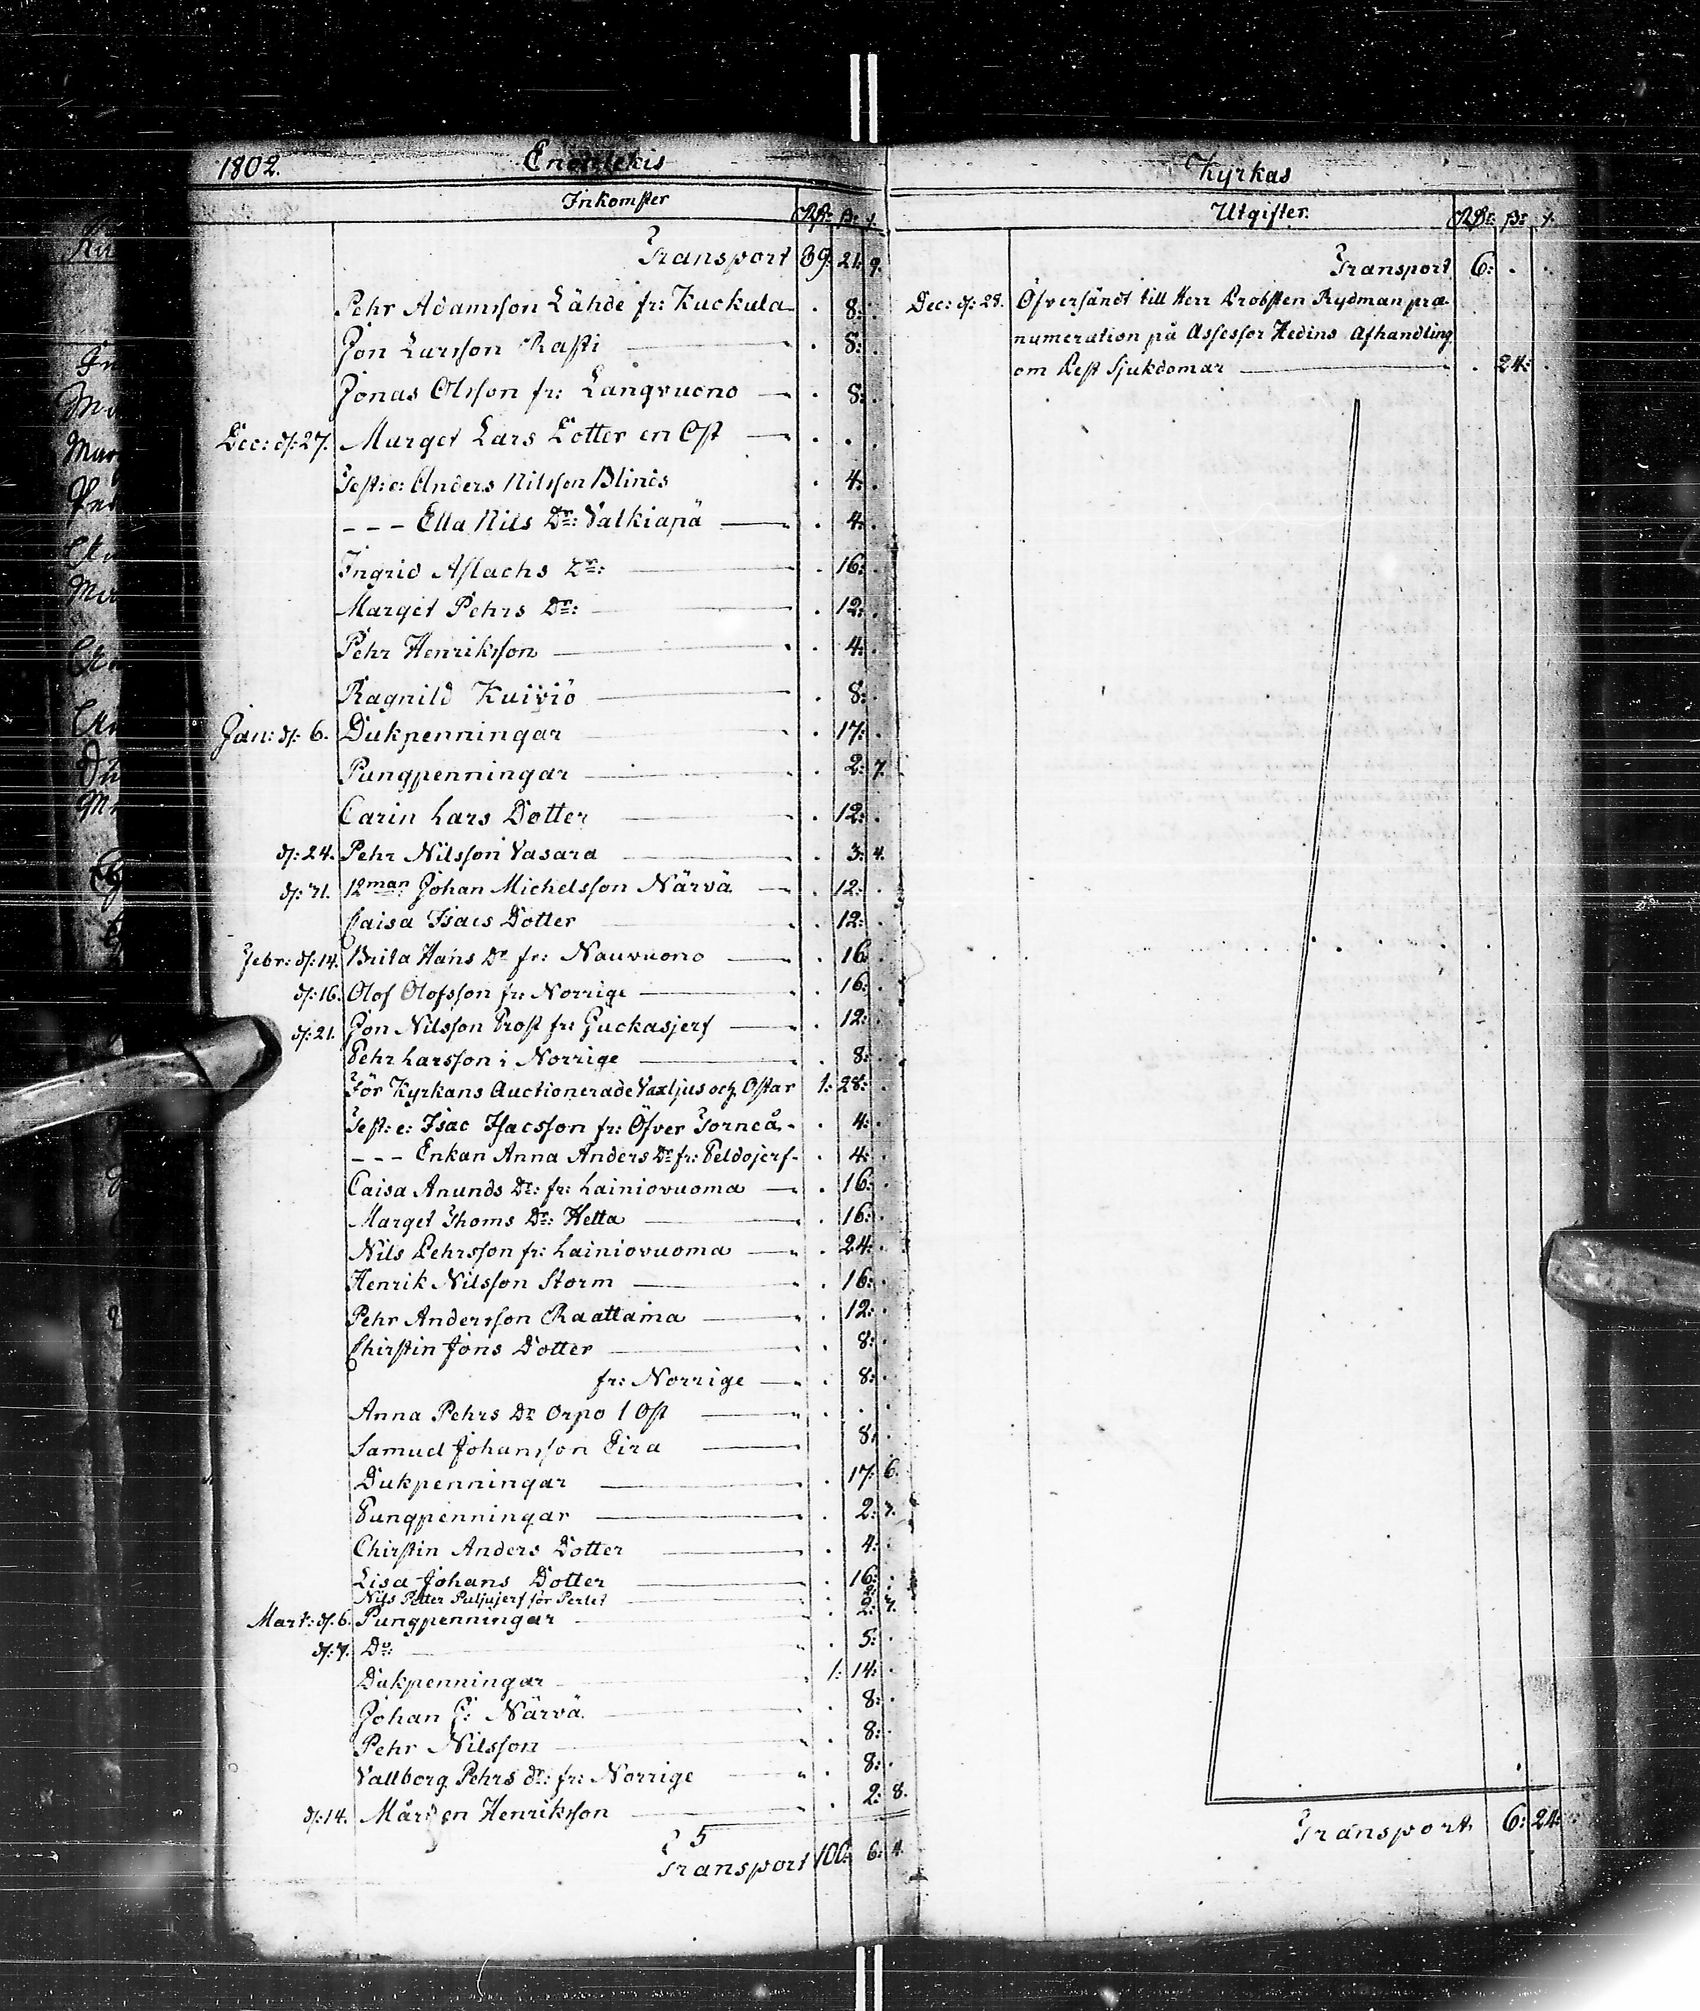 1802. Enontekis
Inkomster Rdr: ß: r.
Transport 89: 21: 9.
Pehr Adamsson Lähde fr: Kuckula . 8: .
Jon Larsson Rasti . 8: .
Jonas Olsson fr: Langvuono . 8: .
Dec: d: 27. Marget Lars Dotter en Ost . . .
Test: e: Anders Nilsson Blinds . 4: .
- - - Ella Nils Dr: Valkiapä . 4: .
Ingrid Aslachs Dr: . 16: .
Marget Pehrs Dr: . 12: .
Pehr Henriksson . 4: .
Ragnild Kuiviö . 8: .
Jan: d: 6. Dukpenningar . 17: .
Pungpenningar . 2: 7.
Carin Lars Dotter . 12: .
d: 24. Pehr Nilsson Vasara . 3: 4.
d: 31. 12man Johan Michelsson Närvä . 12: .
Caisa Isacs Dotter . 12: .
Febr: d: 14. Brita Hans Dr fr: Nauvuono . 16 .
d: 16. Olof Olofsson fr: Norrige . 16: .
d: 21. Jon Nilsson Prost fr: Juckasjerf . 12: .
Pehr Larsson i Norrige . 8: .
För Kyrkans Auctionerade Vaxljus och Ostar 1: 28: .
Test: e: Isac Isacsson fr: Öfver Torneå . 4: .
- - - Enkan Anna Anders Dr fr: Peldojerf . 4: .
Caisa Anunds Dr: fr: Lainiovuoma . 16: .
Marget Thoms Dr: Hetta . 16: .
Nils Pehrsson fr: Lainiovuoma . 24: .
Henrik Nilsson Storm . 16: .
Pehr Andersson Raattama . 12: .
Chirstin Jöns Dotter . 8: .
fr: Norrige . 8: .
Anna Pehrs Dr Orpo 1 Ost . . .
Samuel Johansson Eira 8: .
Dukpenningar . 17: 6.
Pungpenningar . 2: 7.
Chirstin Anders Dotter . 4: .
Lisa Johans Dotter . 16: .
Nils Petter Puljujerf för Perlet . 2: .
Mart: d: 6. Pungpenningar . 2: 7.
d: 7. Do: . 5: .
Dukpenningar 1: 14: .
Johan J: Närvä . 8: .
Pehr Nilsson . 8: .
Vallborg Pehrs dr: fr: Norrige . 8: .
d: 14. Mårten Henriksson . 2: 8.
5
Transport 100: 6: 4.
Kyrkas
Utgifter. Rdr: ß: r.
Transport 6: . .
Dec: d: 28. Öfversändt till Herr Probsten Rydman præ-
numeration på Assessor Hedins Afhandling
om Pest Sjukdomar . 24: .
Transport 6: 24: .